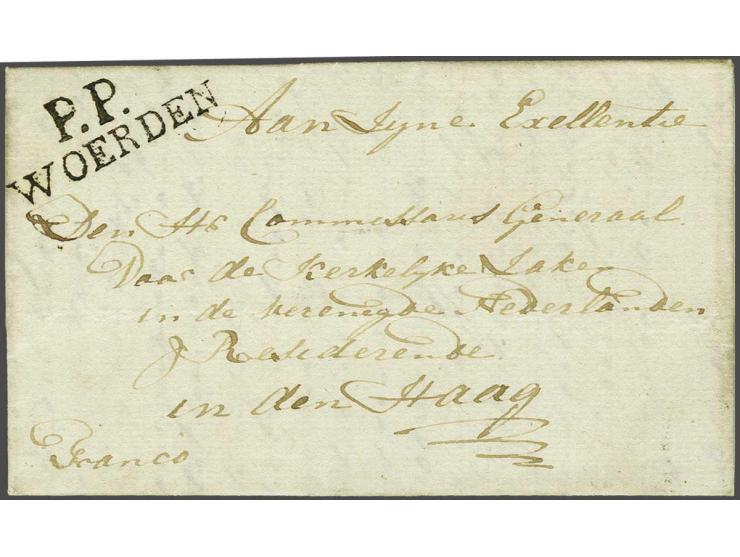 P.P.
WOERDEN
Aan Zyne Exellentie
Den Hr Commissaris Generaal
Voor de Kerkelyke Zake
in de Verenigde Nederlanden
Resederende
in den Haag
Franco